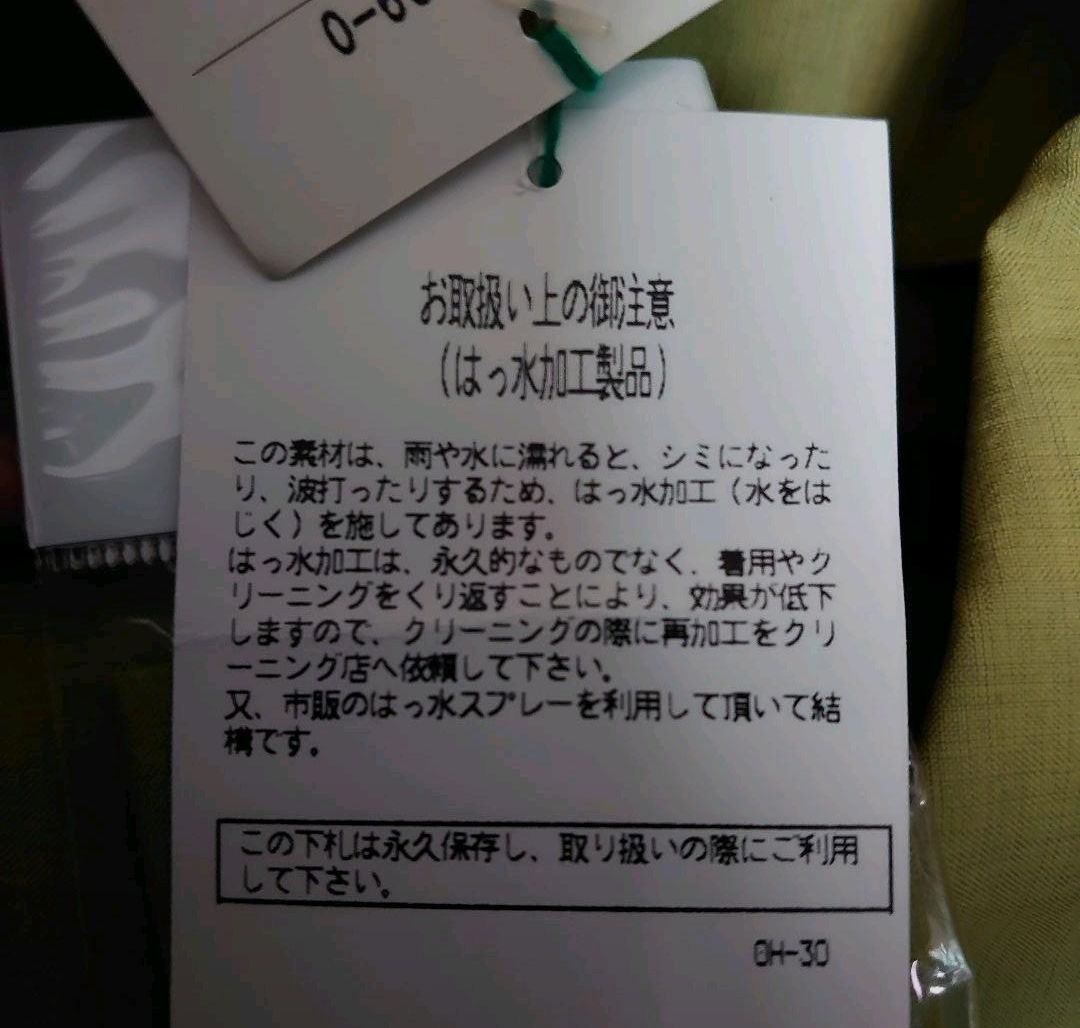 0-6
お取扱い上の御注意
(はっ水加工製品)
この素材は、雨や水に濡れると、シミになった
り、波打ったりするため、はっ水加工(水をは
じく)を施してあります。
はっ水加工は、永久的なものでなく、着用やク
リーニングをくり返すことにより、効果が低下
しますので、クリーニングの際に再加工をクリ
ーニング店へ依頼して下さい。
又、市販のはっ水スプレーを利用して頂いて結
構です。
この下札は永久保存し、取り扱いの際にご利用
して下さい。
OH-30